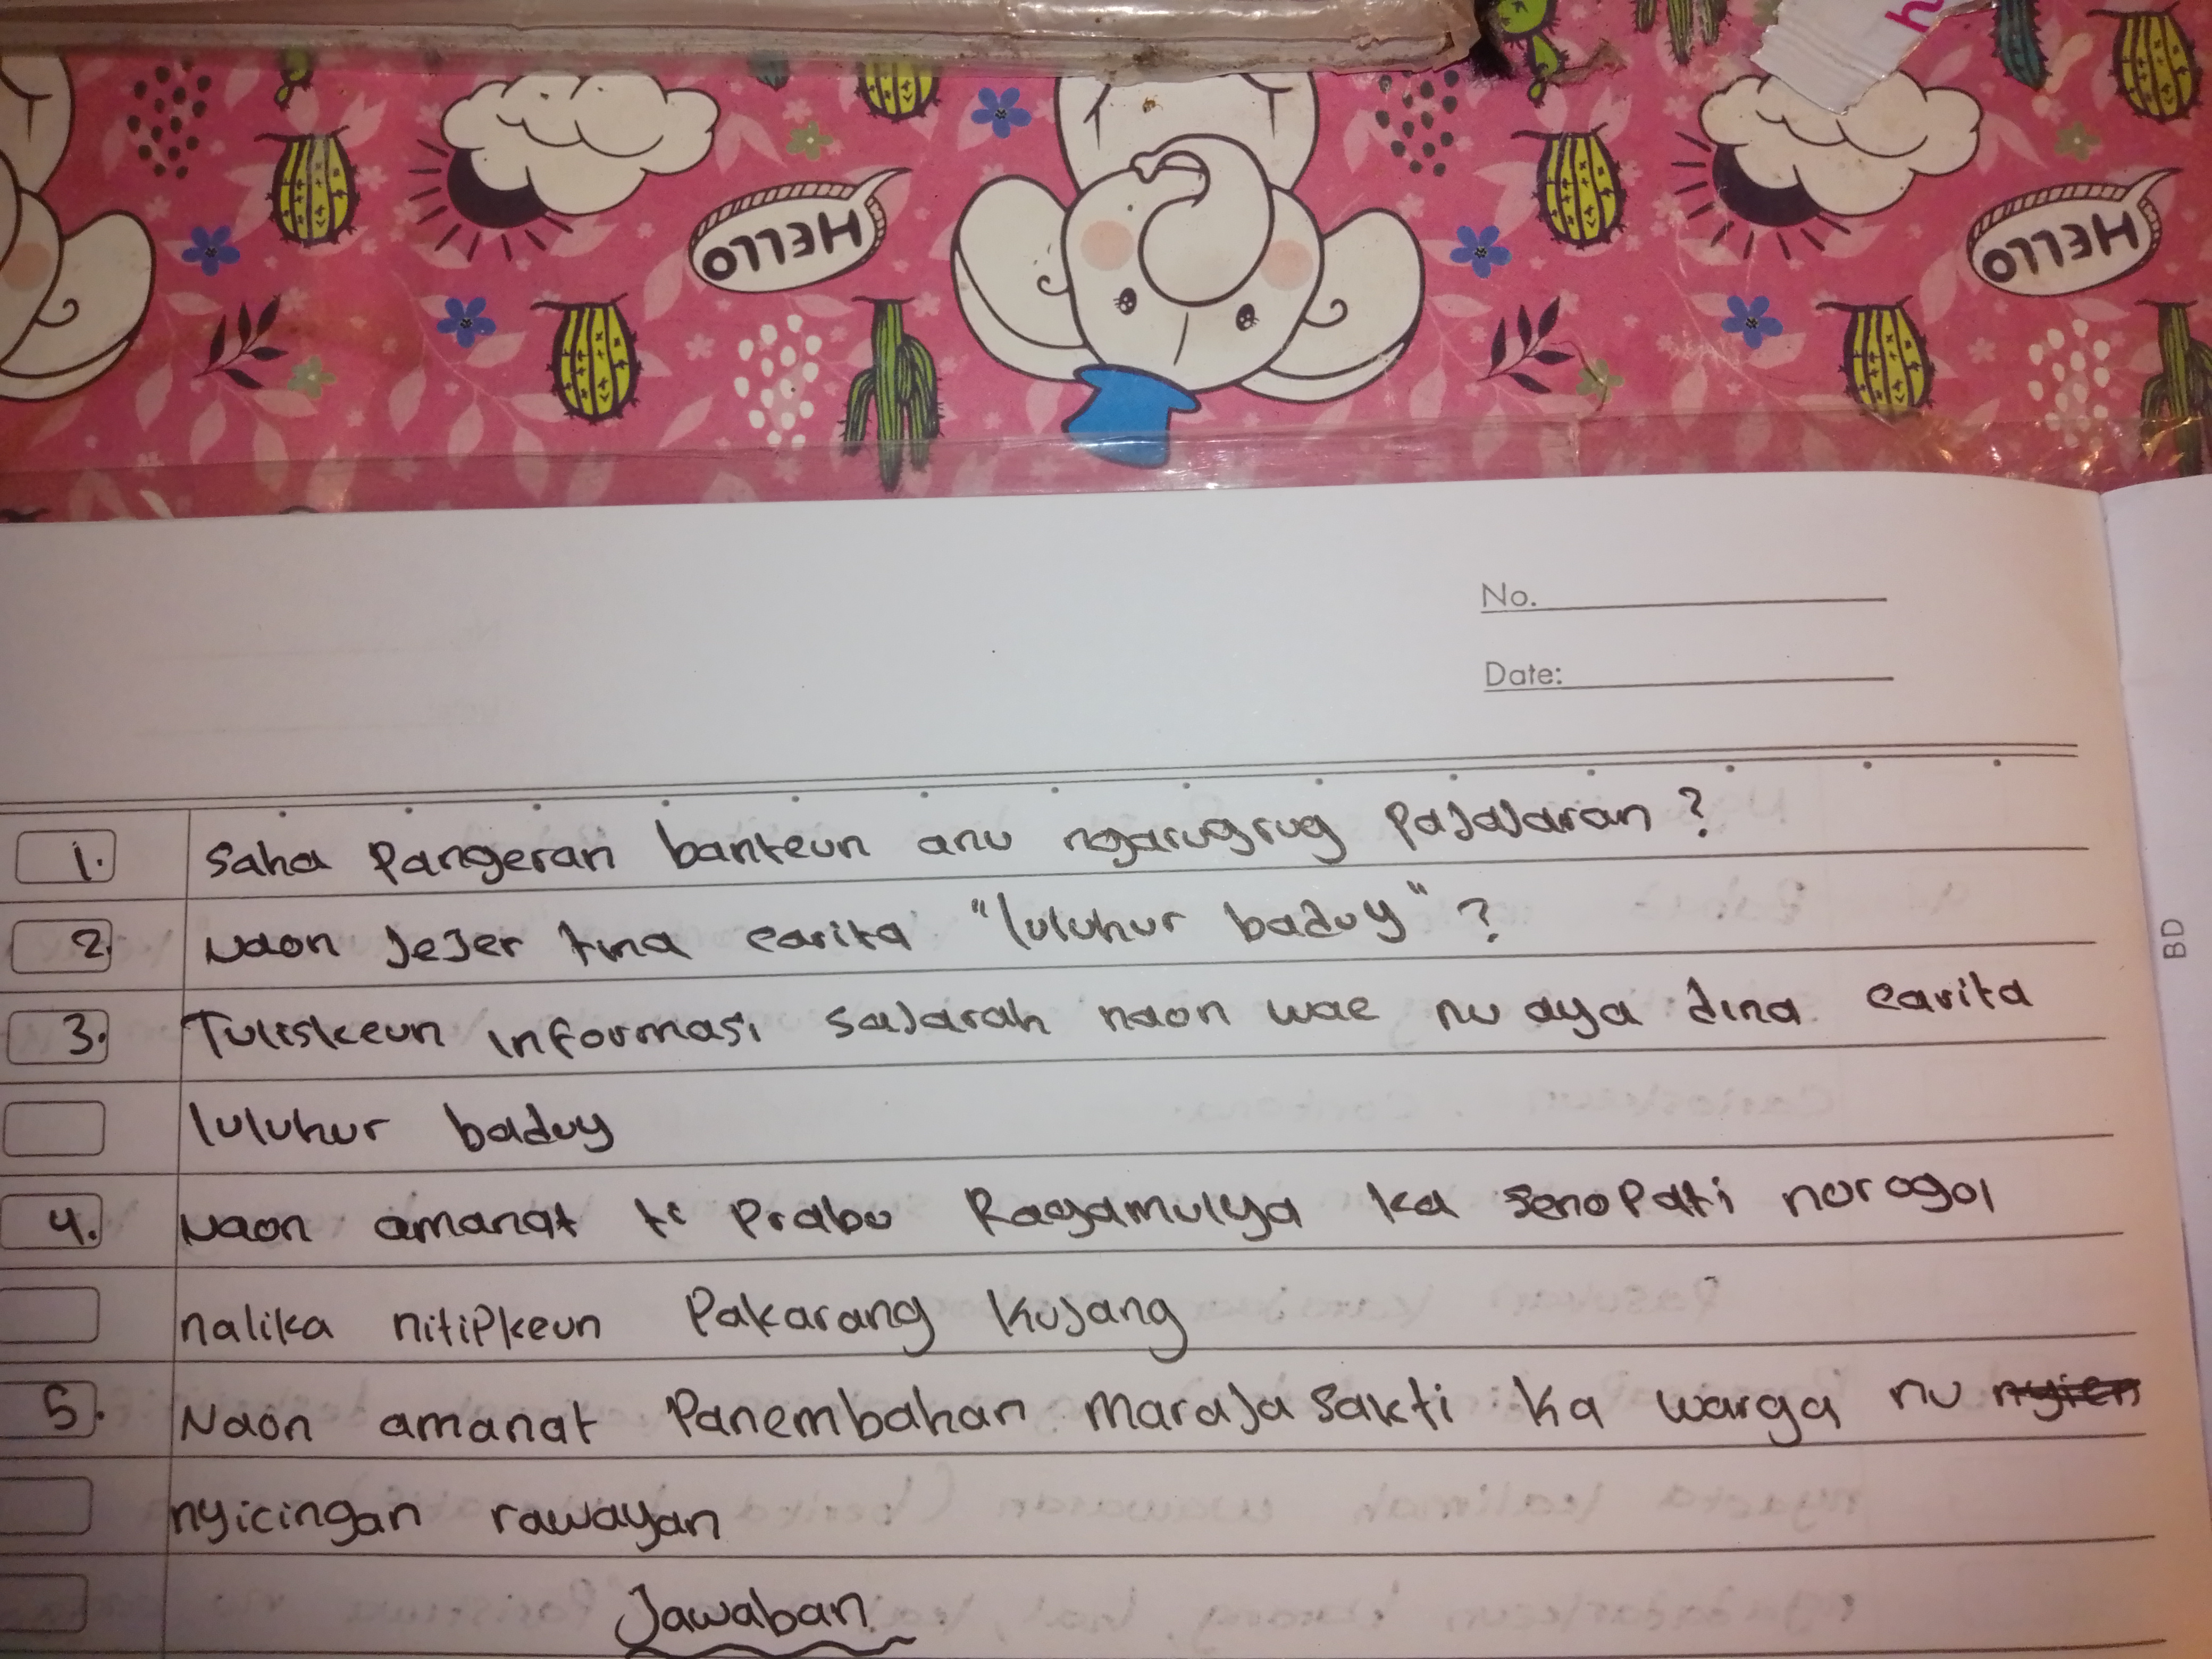 HELLO
HELLO
No.
Date:
1. Saha Pangeran banteun anu ngarugrug Pajajaran ?
2. Naon Jejer tina carita "luluhur baduy" ?
3. Tuliskeun informasi sajarah naon wae nu aya dina carita
luluhur baduy
4. Naon amanat ti Prabu Ragamulya ka Senopati norogol
nalika nitipkeun Pakarang Kujang
5. Naon amanat Panembahan maraja Sakti Ka warga nu
nyicingan rawayan
Jawaban
BD